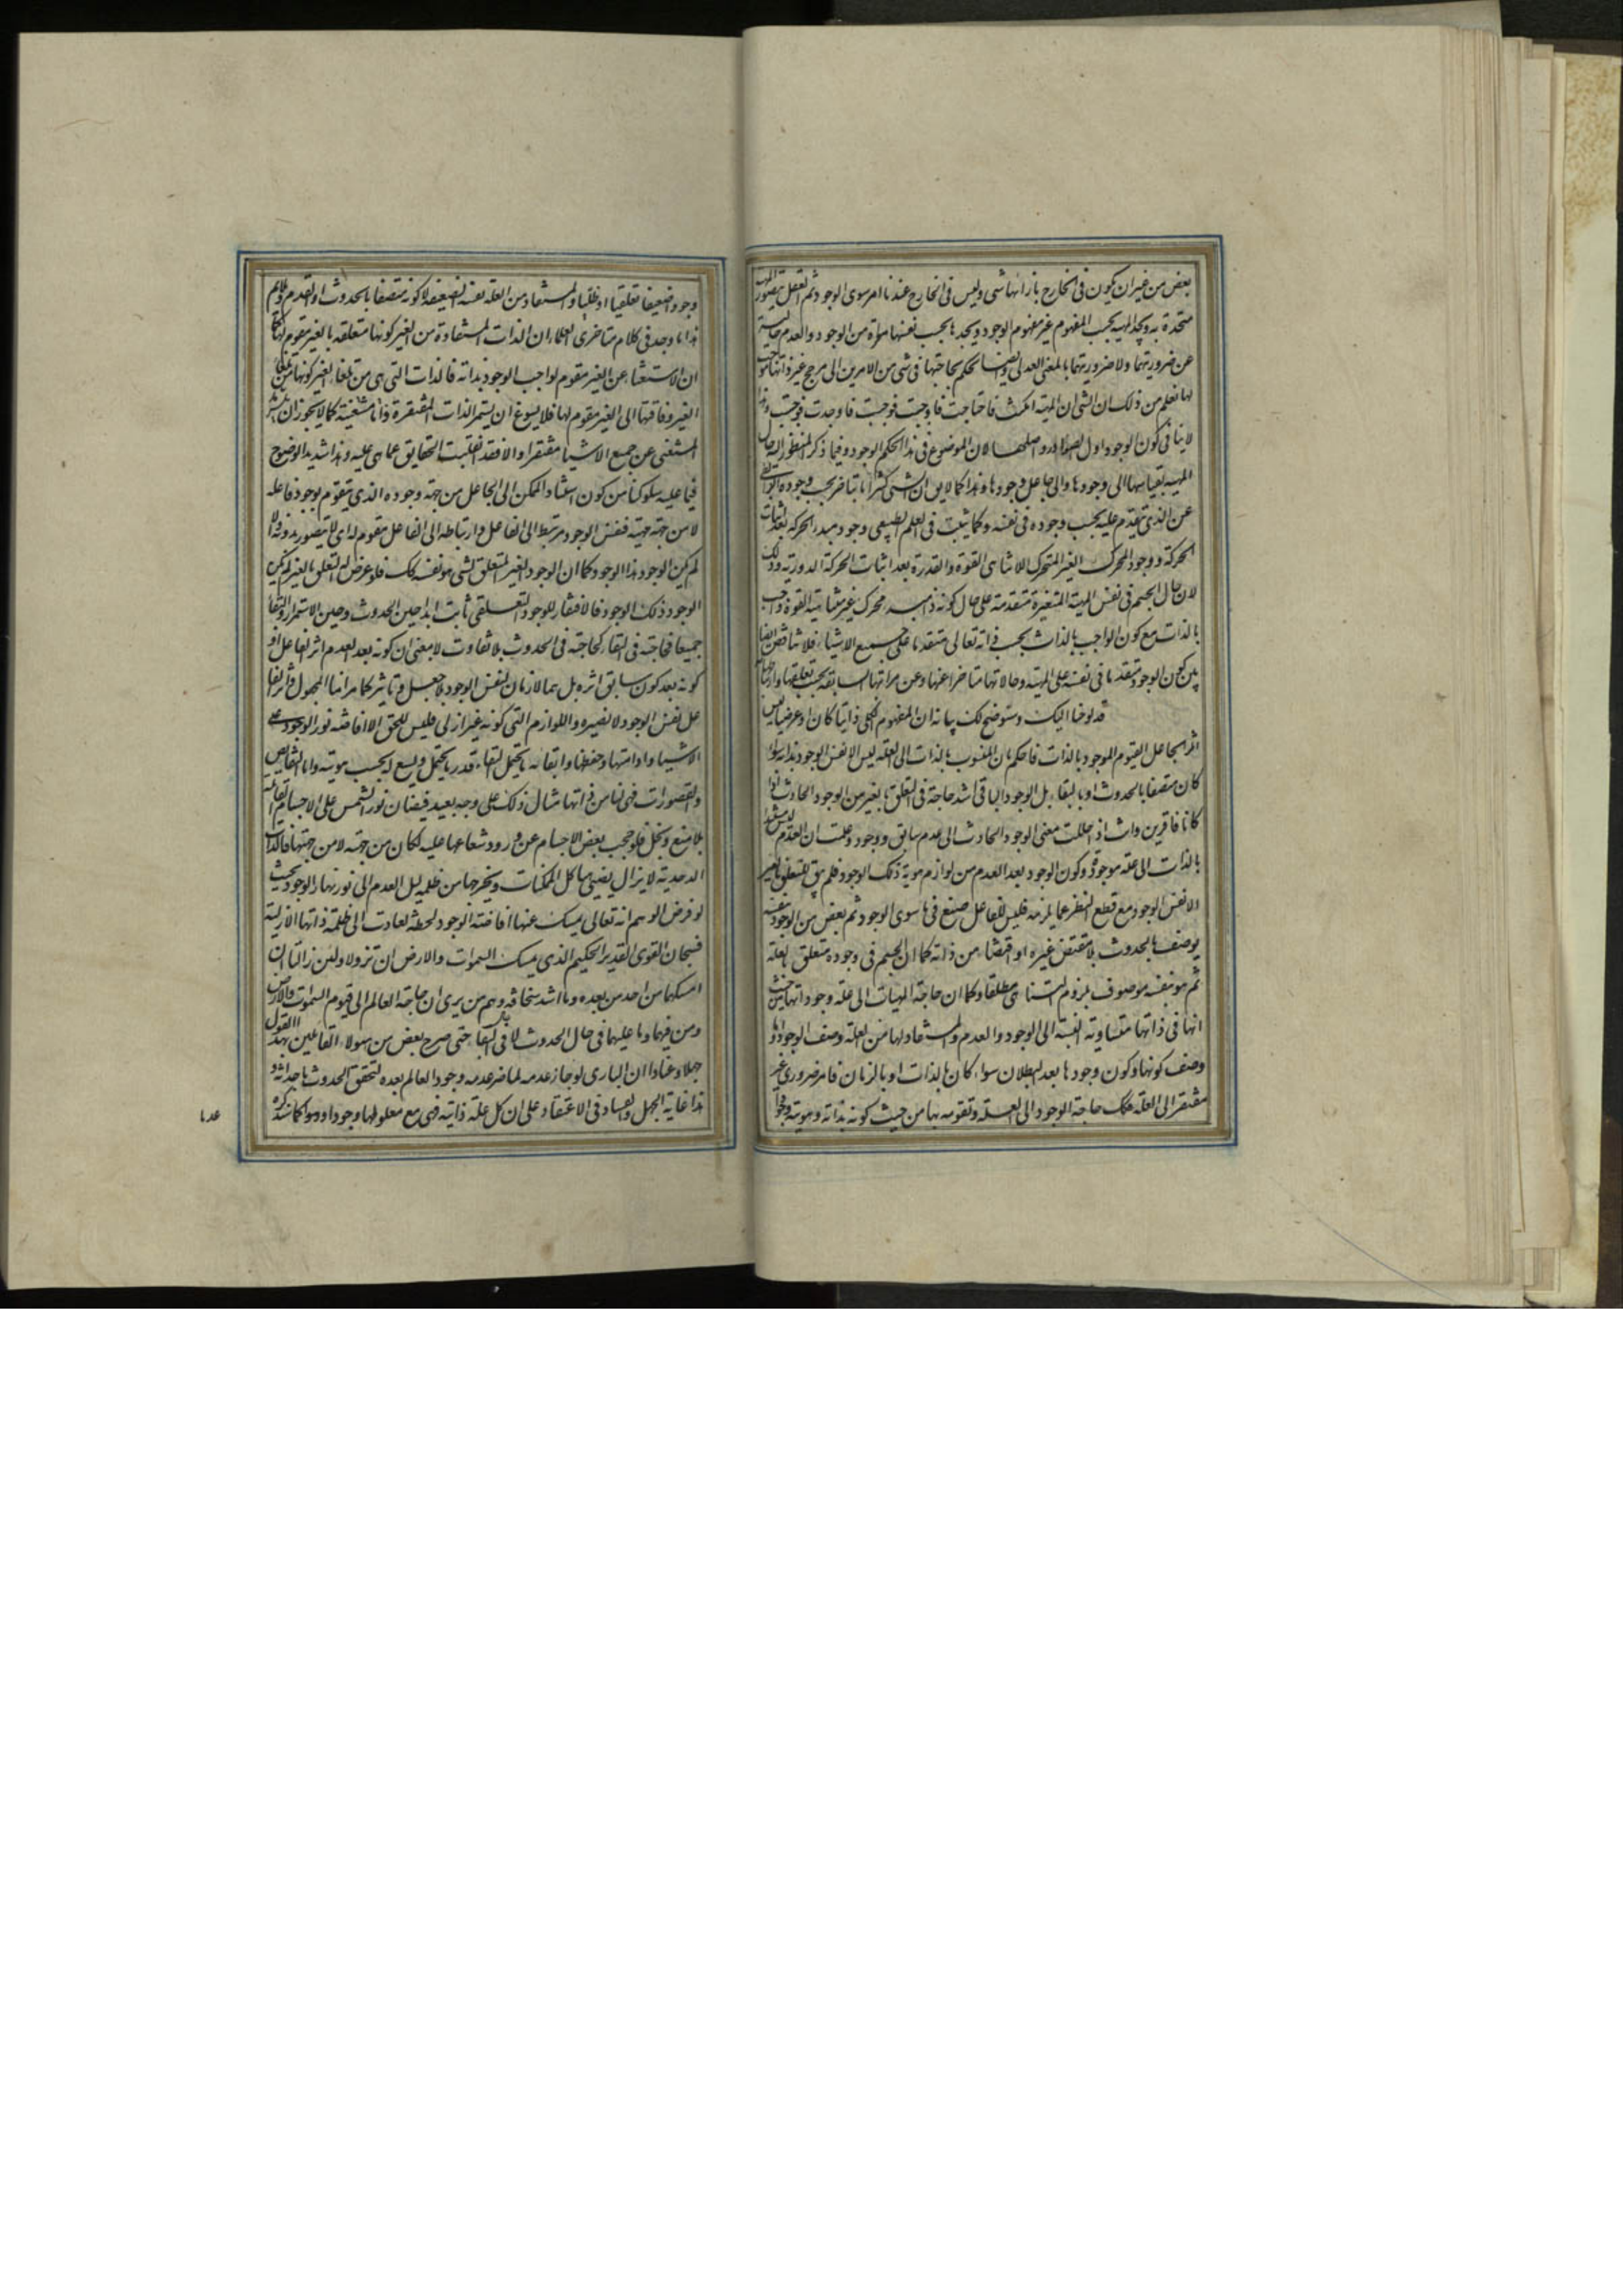 بعض من غير ان يكون فى الخارج بازائها شى وليس فى الخارج عندنا امر سوى الوجود ثم العقل يتصور المهية
متحدة به ويجد المهية بحسب المفهوم غير مفهوم الوجود ويجدها بحسب نفسها معراة من الوجود والعدم خالية
عن ضروريتهما ولا ضروريتهما بالمعنى العدولى ايضا فيحكم بحاجتها فى شى من الامرين الى مرجح غير ذاتها موجب
لها نعلم من ذلك ان الشى ان المهية امكنت فاحتاجت فاوجبت فوجبت فاوجدت فوجدت وهذا
لا ينافى كون الوجود اول الصوادر واصلها لان الموضوع فى هذا الحكم الوجود وفيما ذكر المنظور اليه حال
المهية بقياسها الى وجودها والى جاعل وجودها وهذا كما لا يق ان الشى كثيرا ما يتاخر بحسب وجوده الرابطى
عن الذى يتقدم عليه بحسب وجوده فى نفسه وكما يثبت فى العلم الطبيعى وجود مبدء الحركة بعد اثبات
الحركة ووجود المحرك الغير المتحرك اللامتناهى القوة والقدرة بعد اثبات الحركة الدورية وذلك
لان حال الجسم فى نفس الهيئة المتغيرة متقدمة على حال كونه ذا مبدء محرك غير متناهية القوة واجب
بالذات مع كون الواجب بالذات بحسب ذاته تعالى متقدما على جميع الاشياء فلا تناقض ايضا
بين كون الوجود متقدما فى نفسه على المهية وحالاتها متاخرا عنها وعن مراتبها السابقة بحسب تعلقها وارتباطها
قد لوحنا اليك وسنوضح لك بيانه ان المفهوم الكلى ذاتيا كان او عرضيا ليس
اثر الجاعل القيوم الموجود بالذات فاحكم بان المنسوب بالذات الى العلة ليس الا نفس الوجود بذاته سواء
كان متصفا بالحدوث او بالبقاء بل الوجود الباقى اشد حاجة فى التعلق بالغير من الوجود الحادث اذا
كانا فاقرين وانت اذا حللت معنى الوجود الحادث الى عدم سابق ووجود وعلمت ان العدم ليس مستندا
بالذات الى علة موجودة وكون الوجود بعد العدم من لوازم هوية ذلك الوجود فلم يبق للتعلق بالغير
الا نفس الوجود مع قطع النظر عما يلزمه فليس للفاعل صنع فيما سوى الوجود ثم بعض من الوجود بنفسه
يوصف بالحدوث بلا مقتض غيره او اقتضاء من ذاته كما ان الجسم فى وجوده متعلق بالعلة
ثم هو بنفسه موصوف بلزوم التناهى مطلقا وكما ان حاجة المهيات الى علة وجوداتها من حيث
انها فى ذاتها متساوية النسبة الى الوجود والعدم والمستفاد لها من العلة وصف الوجود واما
وصف كونها وكون وجودها بعد البطلان سواء كان بالذات او بالزمان فامر ضرورى غير
مفتقر الى العلة فكك حاجة الوجود الى العلة وتقومه بها من حيث كونه بذاته وهويته وجودا
وجودا ضعيفا تعلقيا او ظليا والمستفاد من العلة نفسه الضعيفة لا كونه متصفا بالحدوث او القدم وما يلائم
هذا ما وجد فى كلام متاخرى العلماء ان الذات المستفادة من الغير كونها متعلقة بالغير مقوم لها كما
ان الاستغناء عن الغير مقوم لواجب الوجود بذاته فالذات التى هى من تلقاء الغير كونها من تلقاء
الغير وفاقتها الى الغير مقوم لها فلا يسوغ ان يستمر الذات المفتقرة ذاتا مستغنية كما لا يجوز ان يستمر
المستغنى عن جميع الاشياء مفتقرا والا فقد انقلبت الحقايق عما هى عليه وهذا شديد الوضوح
فيما عليه سلوكنا من كون استناد الممكن الى الجاعل من جهة وجوده الذى يتقوم بوجود فاعله
لا من جهة مهيته فنفس الوجود مرتبط الى الفاعل وارتباطه الى الفاعل مقوم له اى لا يتصور بدونه والا
لم يكن الوجود هذا الوجود كما ان الوجود الغير المتعلق بشى هو بنفسه كك فلو عرض له التعلق بالغير لم يكن
الوجود ذلك الوجود فالافتقار للوجود التعلقى ثابت ابدا حين الحدوث وحين الاستمرار والبقاء
جميعا فحاجته فى البقاء كحاجته فى الحدوث بلا تفاوت لا بمعنى ان كونه بعد العدم اثر الفاعل او
كونه بعد كون سابق اثره بل هما لازمان لنفس الوجود بلا جعل وتاثير كما مر انما المجعول واثر الفاعل
نفس الوجود لا بغيره واللوازم التى كونه غير ازلى فليس للحق الا افاضة نور الوجود على
الاشياء وادامتها وحفظها وابقائه ما يحتمل البقاء قدر ما يحتمل ويسع له بحسب هويته واما النقايص
والقصورات فهى لها من ذاتها مثال ذلك على وجه بعيد فيضان نور الشمس على الاجسام القابلة
بلا منع وبخل فلو حجب بعض الاجسام عن ورود شعاعها عليه لكان من جهته لا من جهتها فالذات
الاحدية لا يزال يضيئ هياكل الممكنات ويخرجها من ظلمة ليل العدم الى نور نهار الوجود بحيث
لو فرض الوهم انه تعالى يمسك عنها افاضة الوجود لحظة لعادت الى ظلمة ذاتها الازلية
فسبحان القوى القدير الحكيم الذى يمسك السموات والارض ان تزولا ولئن زالتا ان
امسكهما من احد من بعده وما اشد سخافة وهم من يرى ان حاجة العالم الى قيوم السموات والارض
ومن فيهما وما عليهما فى حال الحدوث لا فى حال البقاء حتى صرح بعض من هولاء القائلين بهذا القول
جهلا وعنادا ان البارى لو جاز عدمه لما ضر عدمه وجود العالم بعده لتحقق الحدوث باحداثه و
هذا غاية الجهل والفساد فى الاعتقاد على ان كل علة ذاتية فهى مع معلولها وجودا ودواما كما سنذكره